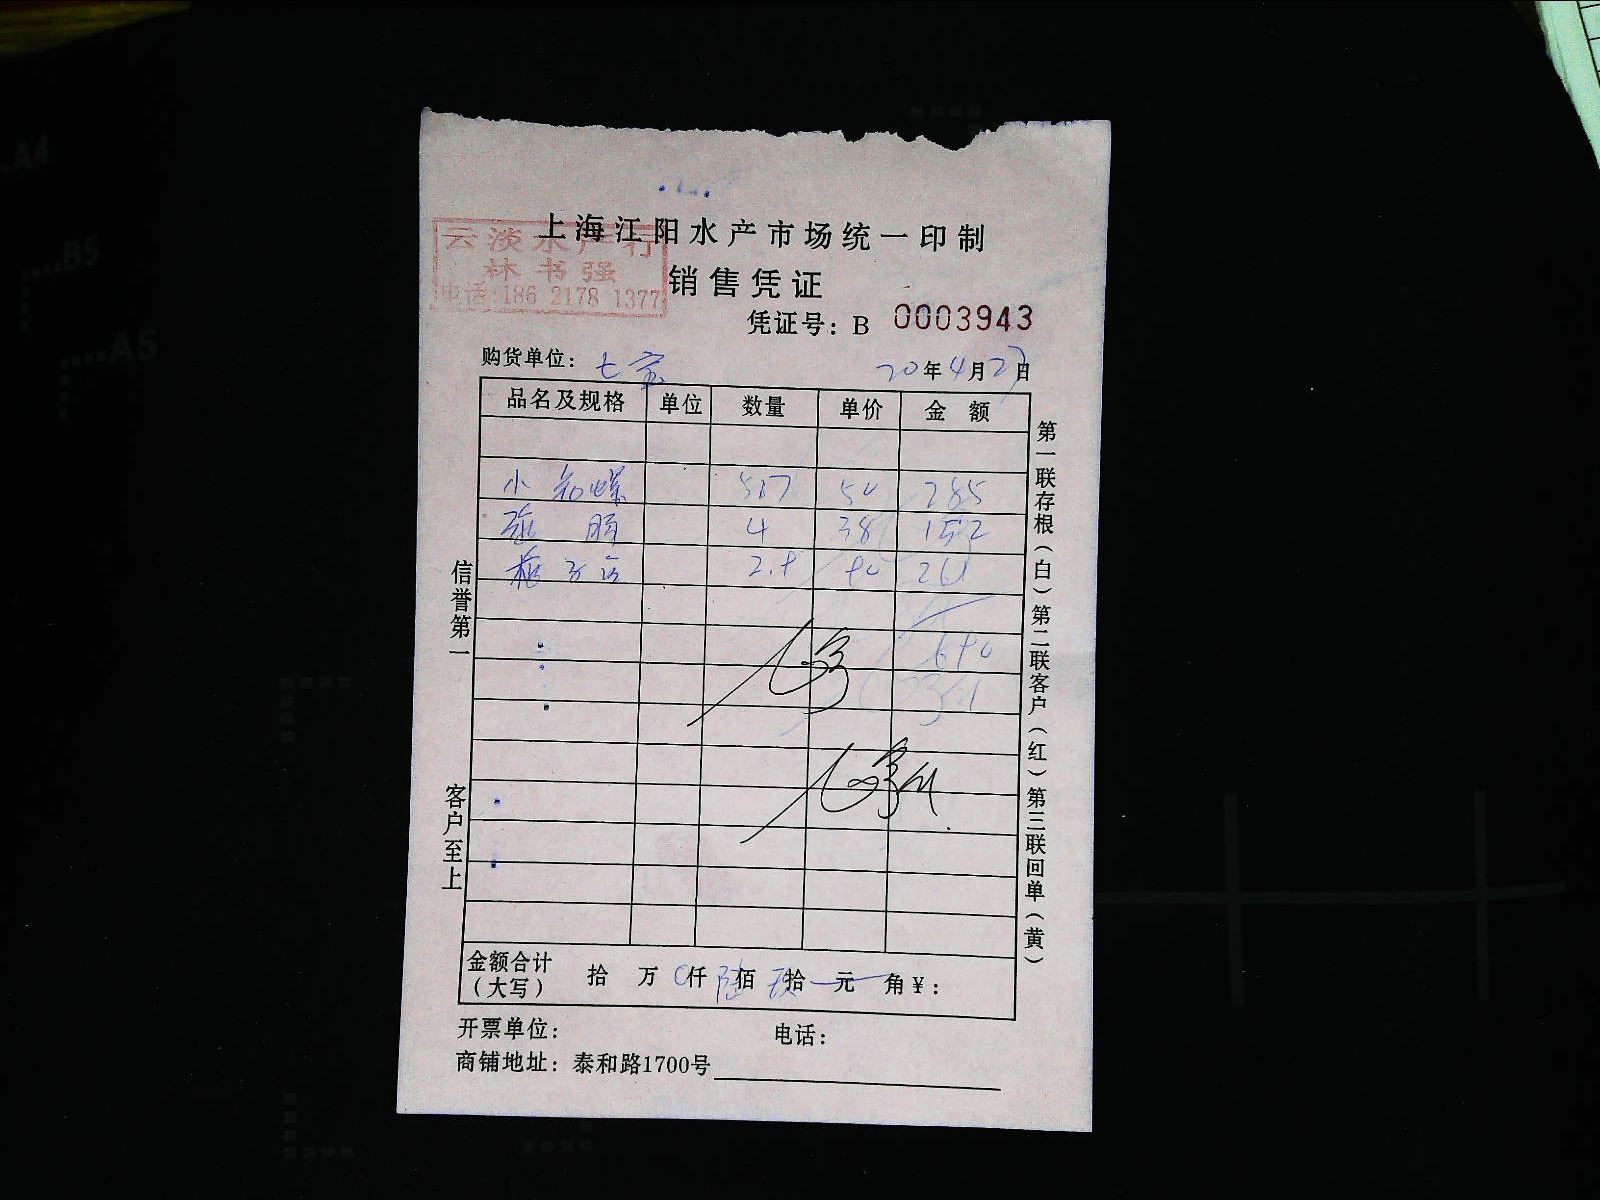 上海江阳水产市场统一印制
云淡水产行
林书强
电话:186 2178 1377
销售凭证
凭证号：B 0003943
购货单位：七宝
20年4月27日
品名及规格 单位 数量 单价 金额
小 螺 5.7 50 285
4 38 152
2.9 90 261
690
金额合计（大写） 拾 万 仟 陆佰 玖拾 元 角￥：
开票单位： 电话：
商铺地址：泰和路1700号
信誉第一
客户至上
第一联存根（白）第二联客户（红）第三联回单（黄）